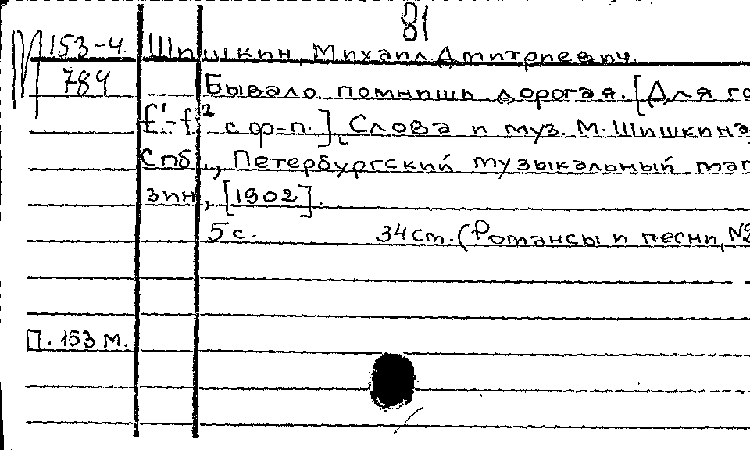 81
М 153-4 Шишкин, Михаил Дмитриевич.
784 Бывало помнишь дорогая. [Для го
f¹-f² с ф-п.] Слова и муз. М. Шишкина
Спб., Петербургский музыкальный мага
зин, [1902].
5 с. 34 см. (Романсы и песни, №
П. 153 М.